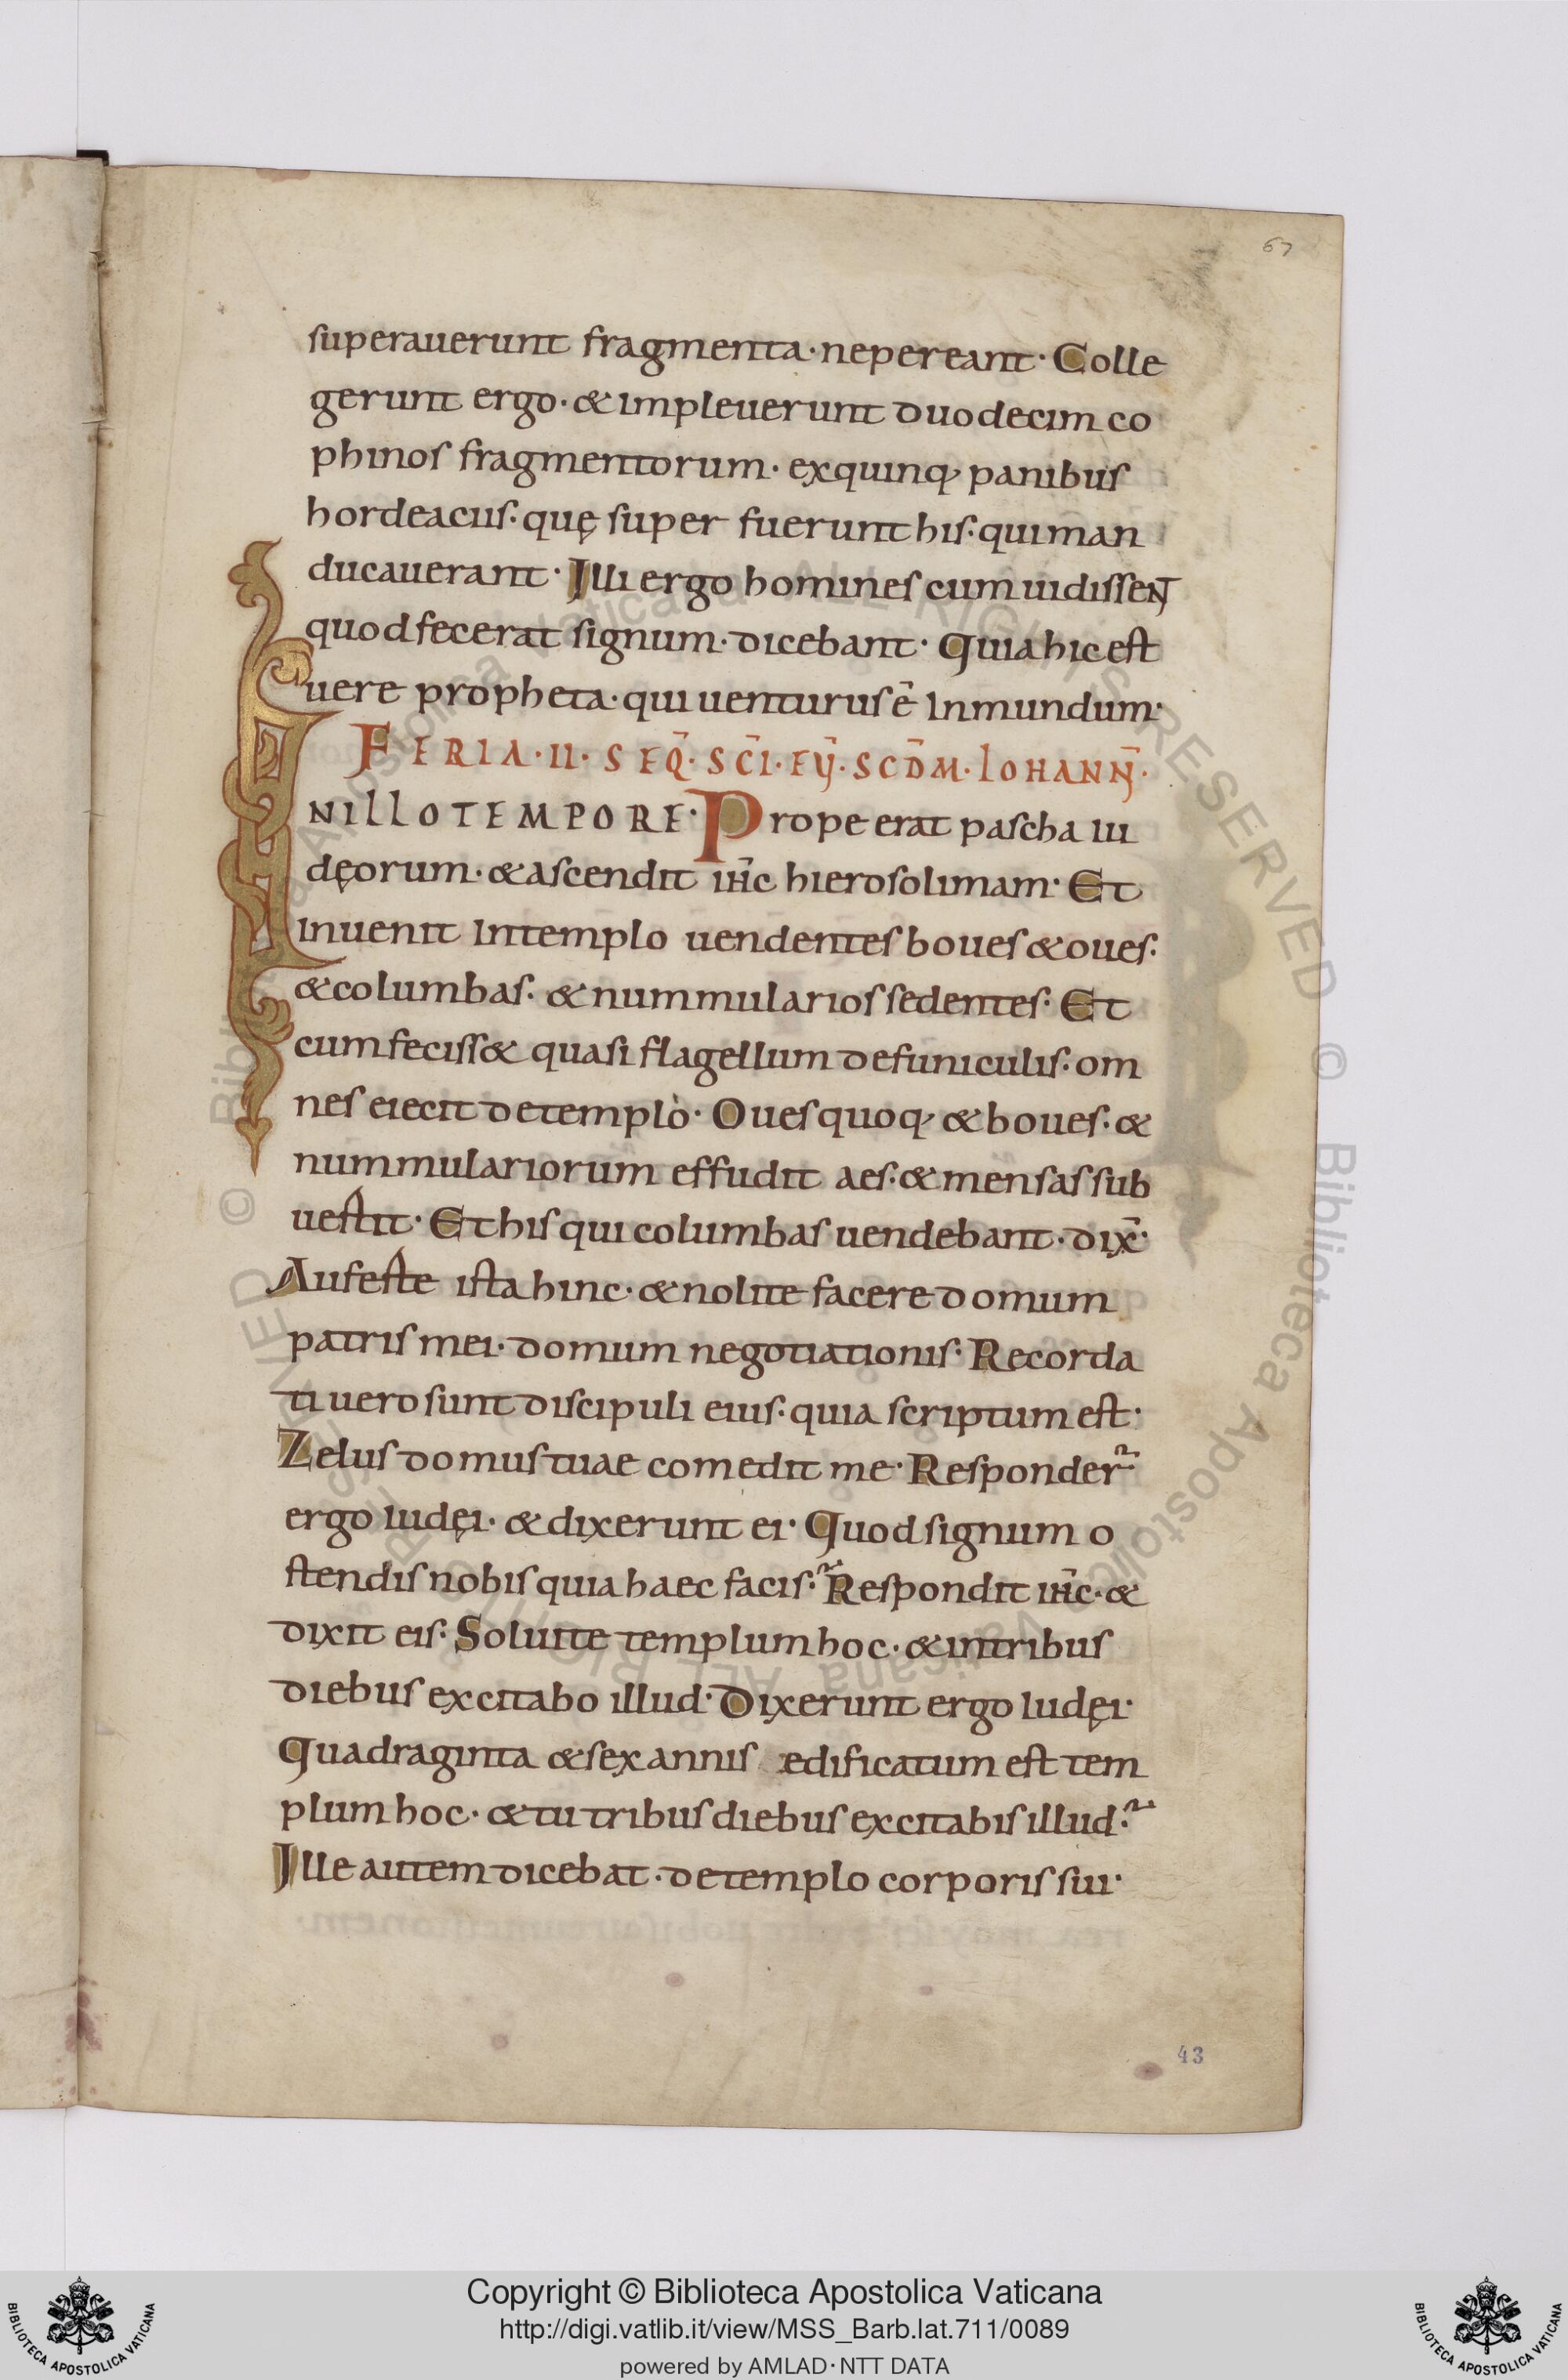 67
superauerunt fragmenta· nepereant· Colle
gerunt ergo· & impleuerunt duodecim co
phinos fragmentorum· exquinq; panibus
hordeaciis· quę super fuerunt his· quiman
ducauerant· Illi ergo homines cum uidissent
quod fecerat signum· dicebant· Quia hic est
uere propheta· qui uenturus ē Inmundum·
FERIA· II· SEQ̄· SC̄I· EỸ· SCD̄M· IOHANN̄·
INILLOTEMPORE· Prope erat pascha iu
dęorum· & ascendit ih̄c hierosolimam· Et
inuenit Intemplo uendentes boues & oues·
& columbas· & nummularios sedentes· Et
cum feciss& quasi flagellum defuniculis· om
nes eiecit detemplo· Oues quoq; & boues· &
nummulariorum effudit aes· & mensas sub
uertit· Et his qui columbas uendebant· dix̄·
Auferte ista hinc· & nolite facere domum
patris mei· domum negotiationis· Recorda
ti uero sunt discipuli eius· quia scriptum est·
Zelus domus tuae comedit me· Responder̃·
ergo Iudęi· & dixerunt ei· Quod signum o
stendis nobis quia haec facis? Respondit ih̄c· &
dixit eis· Soluite templum hoc· & intribus
diebus excitabo illud· Dixerunt ergo Iudęi·
Quadraginta & sex annis ędificatum est tem
plum hoc· & tu tribus diebus excitabis illud?
Ille autem dicebat· detemplo corporis sui·
43
© Biblioteca Apostolica Vaticana ALL RIGHTS RESERVED © Biblioteca Apostolica Vaticana ALL RIGHTS RESERVED
Copyright © Biblioteca Apostolica Vaticana
http://digi.vatlib.it/view/MSS_Barb.lat.711/0089
powered by AMLAD·NTT DATA
BIBLIOTECA APOSTOLICA VATICANA
BIBLIOTECA APOSTOLICA VATICANA